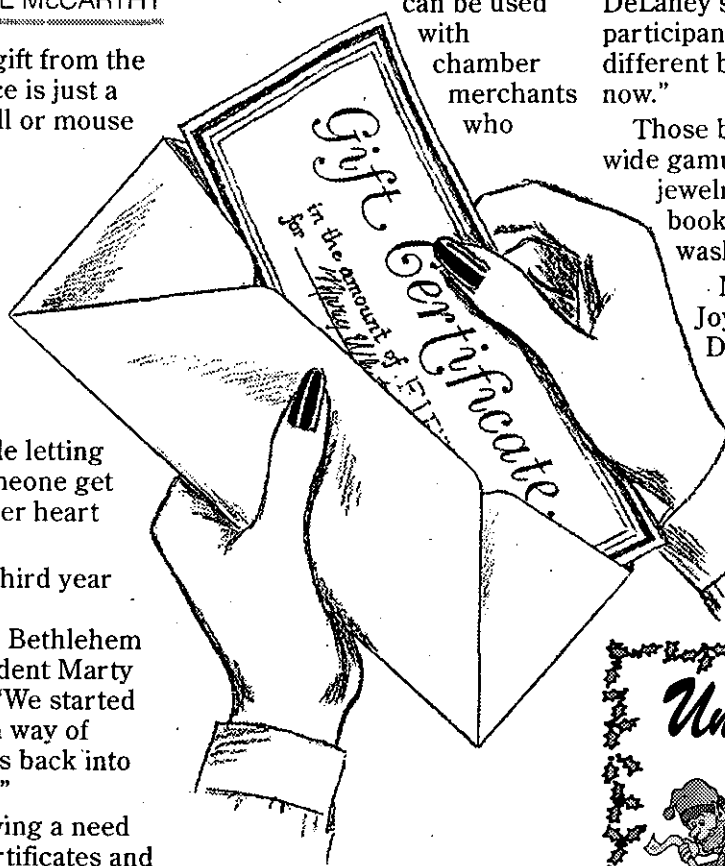 McCARTHY
gift from the
ce is just a
ll or mouse
le letting
meone get
er heart
third year
Bethlehem
dent Marty
"We started
way of
s back into
"
ving a need
rtificates and
can be used
with
chamber
merchants
who
Gift Certificate
in the amount of
for Mary
DeLaney s
participan
different b
now."
Those b
wide gamu
jewelr
book
wash
Joy
D
Un